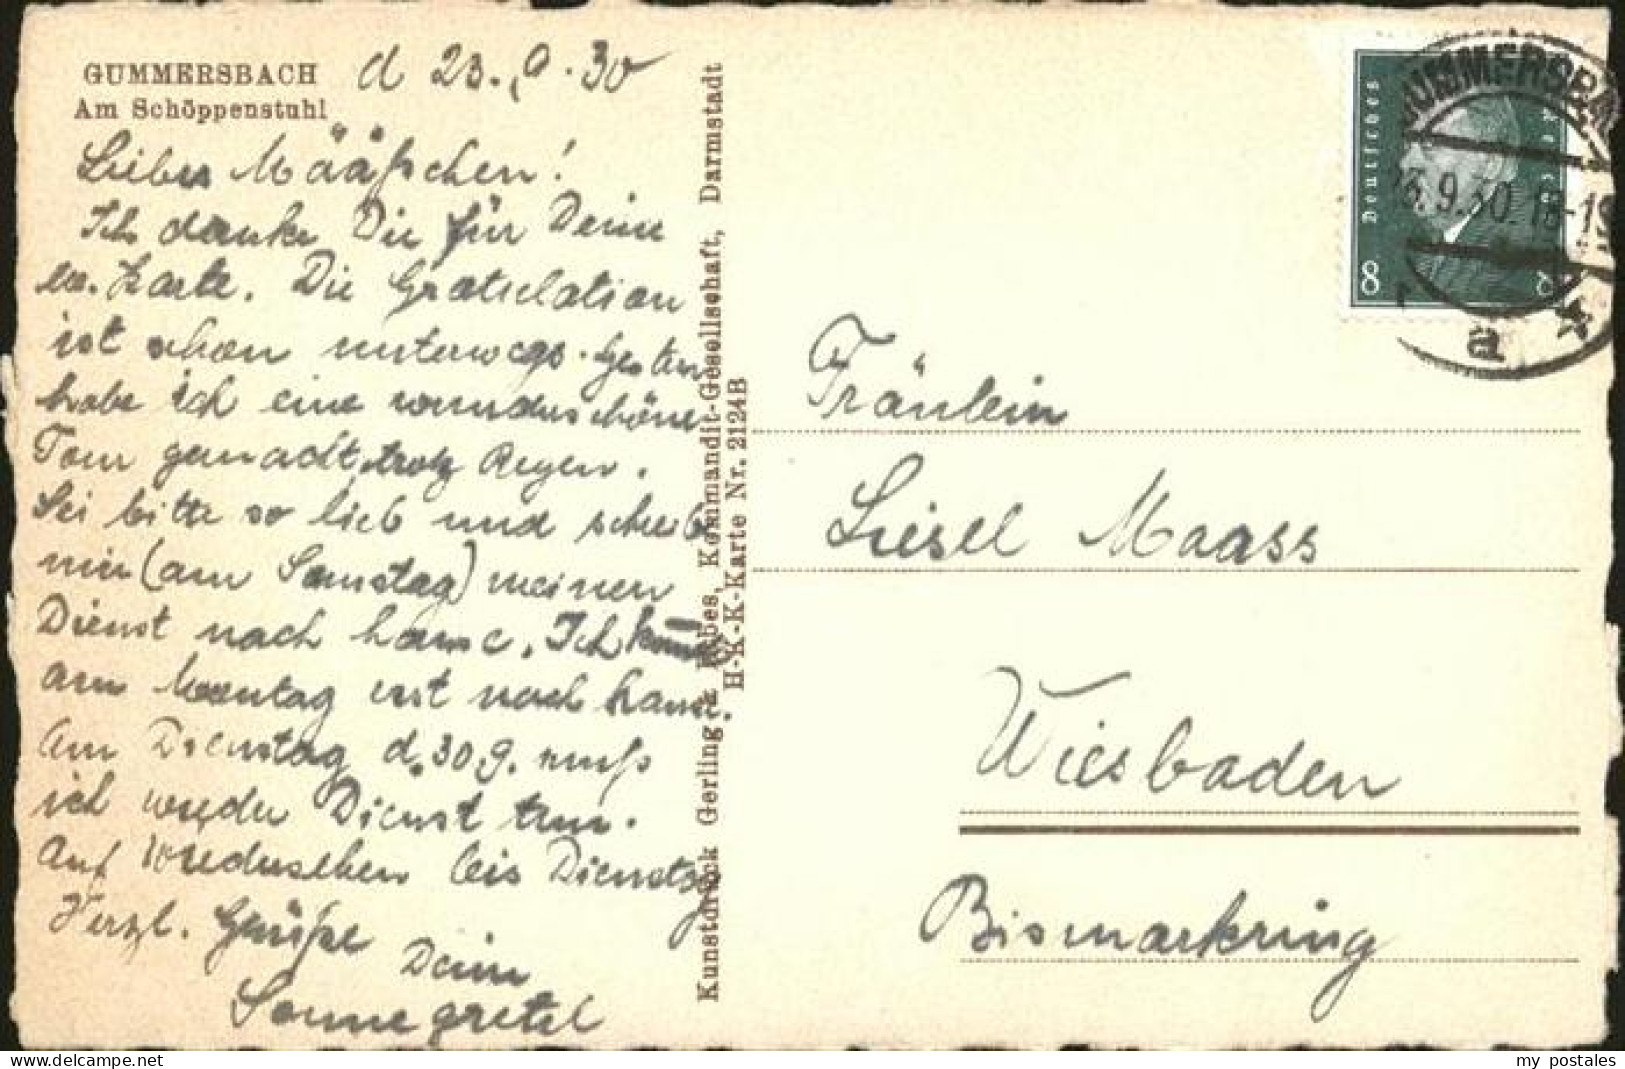 GUMMERSBACH
Am Schöppenstuhl
d 23.9.30
Liebes Määßchen!
Ich danke Dir für Deine
l. Karte. Die Gratulation
ist schon unterwegs. Gestern
habe ich eine wunderschöne
Tour gemacht trotz Regen.
Sei bitte so lieb und schreib
mir (am Samstag) meinen
Dienst nach hause. Ich komme
am Montag erst nach hause.
Am Dienstag d. 30.9. muß
ich wieder Dienst tun.
Auf Wiedersehen bis Dienstag
Herzl. Grüße
Deine
Sonnegretel
Kunstdruck Gerling & Erbes, Kommandit-Gesellschaft, Darmstadt
H-K-K-Karte Nr. 2124B
Deutsches Reich
8
GUMMERSBACH
23.9.30. 18-19
a
Fräulein
Liesel Maass
Wiesbaden
Bismarkring
delcampe.net
my_postales